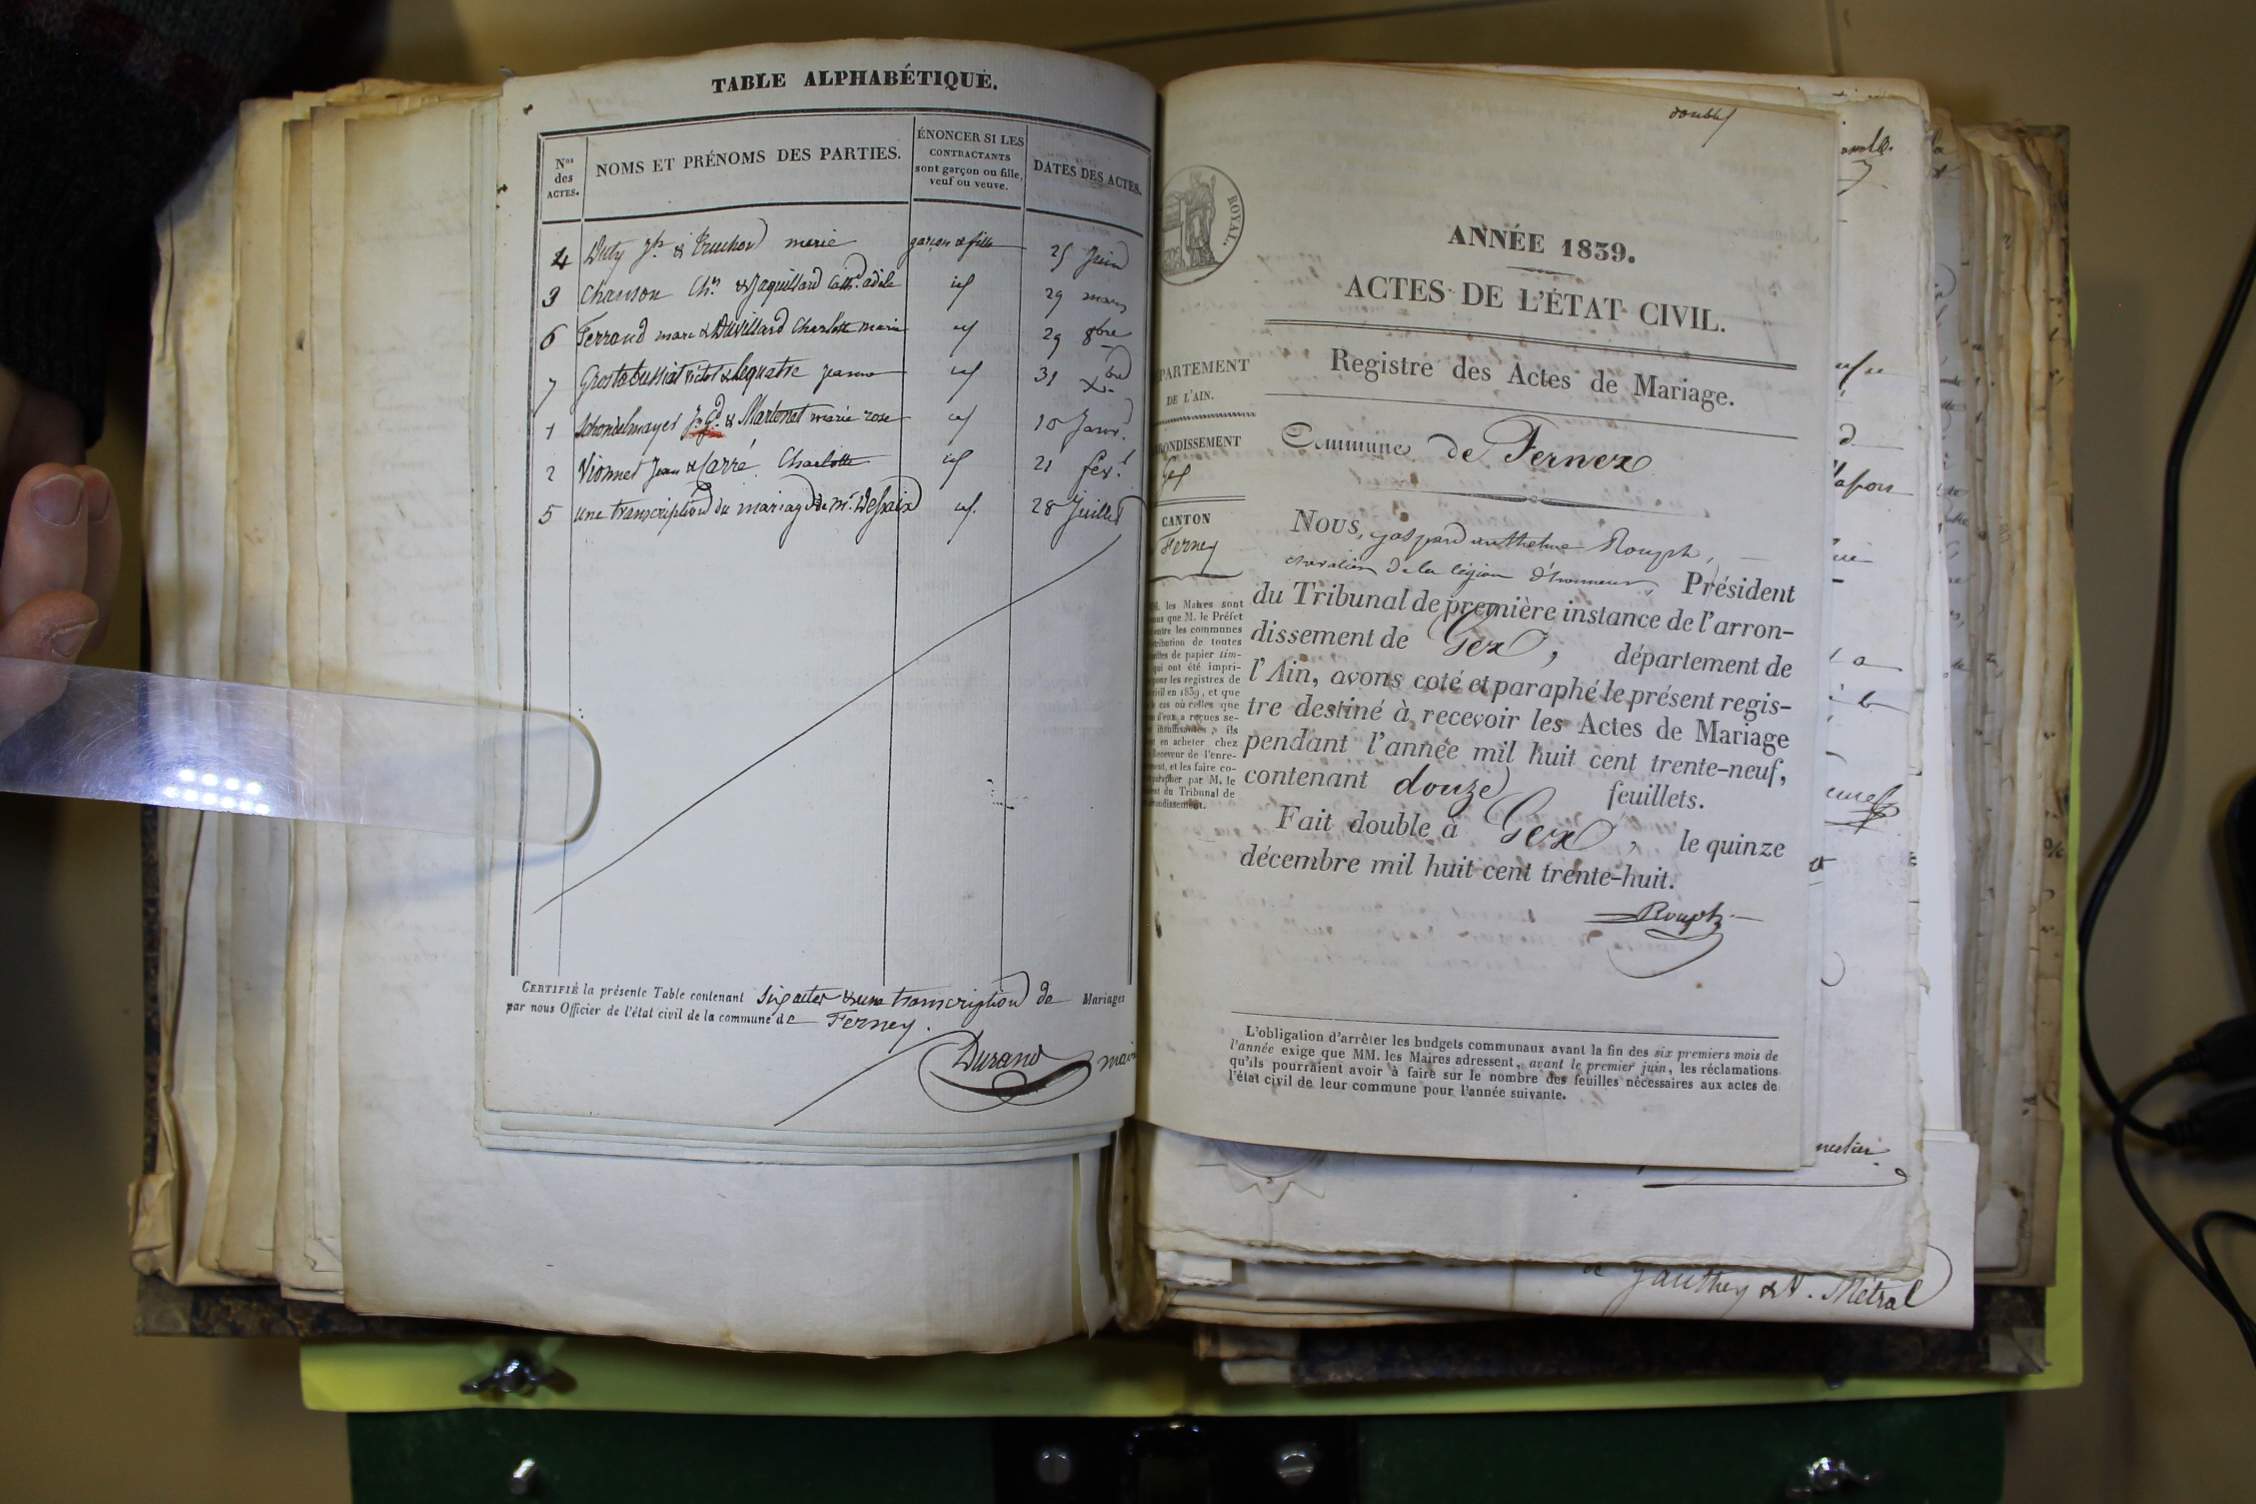 TABLE ALPHABÉTIQUE.
Nos des ACTES.
NOMS ET PRÉNOMS DES PARTIES.
ÉNONCER SI LES CONTRACTANTS sont garçon ou fille, veuf ou veuve.
DATES DES ACTES.
4 & Truchon marie garçon & fille 25 Juin
3 Chanson & Jaquillard Cathe adèle id 29 mars
6 Ferraud marc & Duvillard Charlotte marie id 29 8bre
7 victor & Lequatre jeanne id 31 Xbre
1 Schondelmayer & Martenet marie rose id 10 Janvr.
2 Vionnet Jean & Carré Charlotte id 21 fevr.
5 une transcription du mariage de Mr. id. 28 Juillet
CERTIFIÉ la présente Table contenant Six actes & une transcription de Mariages
par nous Officier de l'état civil de la commune de Ferney.
Durand maire
double
ROYAL.
ANNÉE 1839.
ACTES DE L'ÉTAT CIVIL.
Registre des Actes de Mariage.
PARTEMENT
DE L'AIN.
ONDISSEMENT
Gex
CANTON
Ferney
Commune de Fernex
Nous, gaspard anthelme Rouph,
chevalier de la légion d'honneur, Président
du Tribunal de première instance de l'arron-
dissement de Gex, département de
l'Ain, avons coté et paraphé le présent regis-
tre destiné à recevoir les Actes de Mariage
pendant l'année mil huit cent trente-neuf,
contenant douze feuillets.
Fait double à Gex, le quinze
décembre mil huit cent trente-huit.
Rouph
les Maires sont
que M. le Préfet
les communes
de toutes
de papier tim-
qui ont été impri-
pour les registres de
civil en 1839, et que
cas où celles que
reçues se-
ils
en acheter chez
Receveur de l'enre-
et les faire co-
par M. le
du Tribunal de
L'obligation d'arrêter les budgets communaux avant la fin des six premiers mois de
l'année exige que MM. les Maires adressent, avant le premier juin, les réclamations
qu'ils pourraient avoir à faire sur le nombre des feuilles nécessaires aux actes de
l'état civil de leur commune pour l'année suivante.
de Gauthey & N. Métral